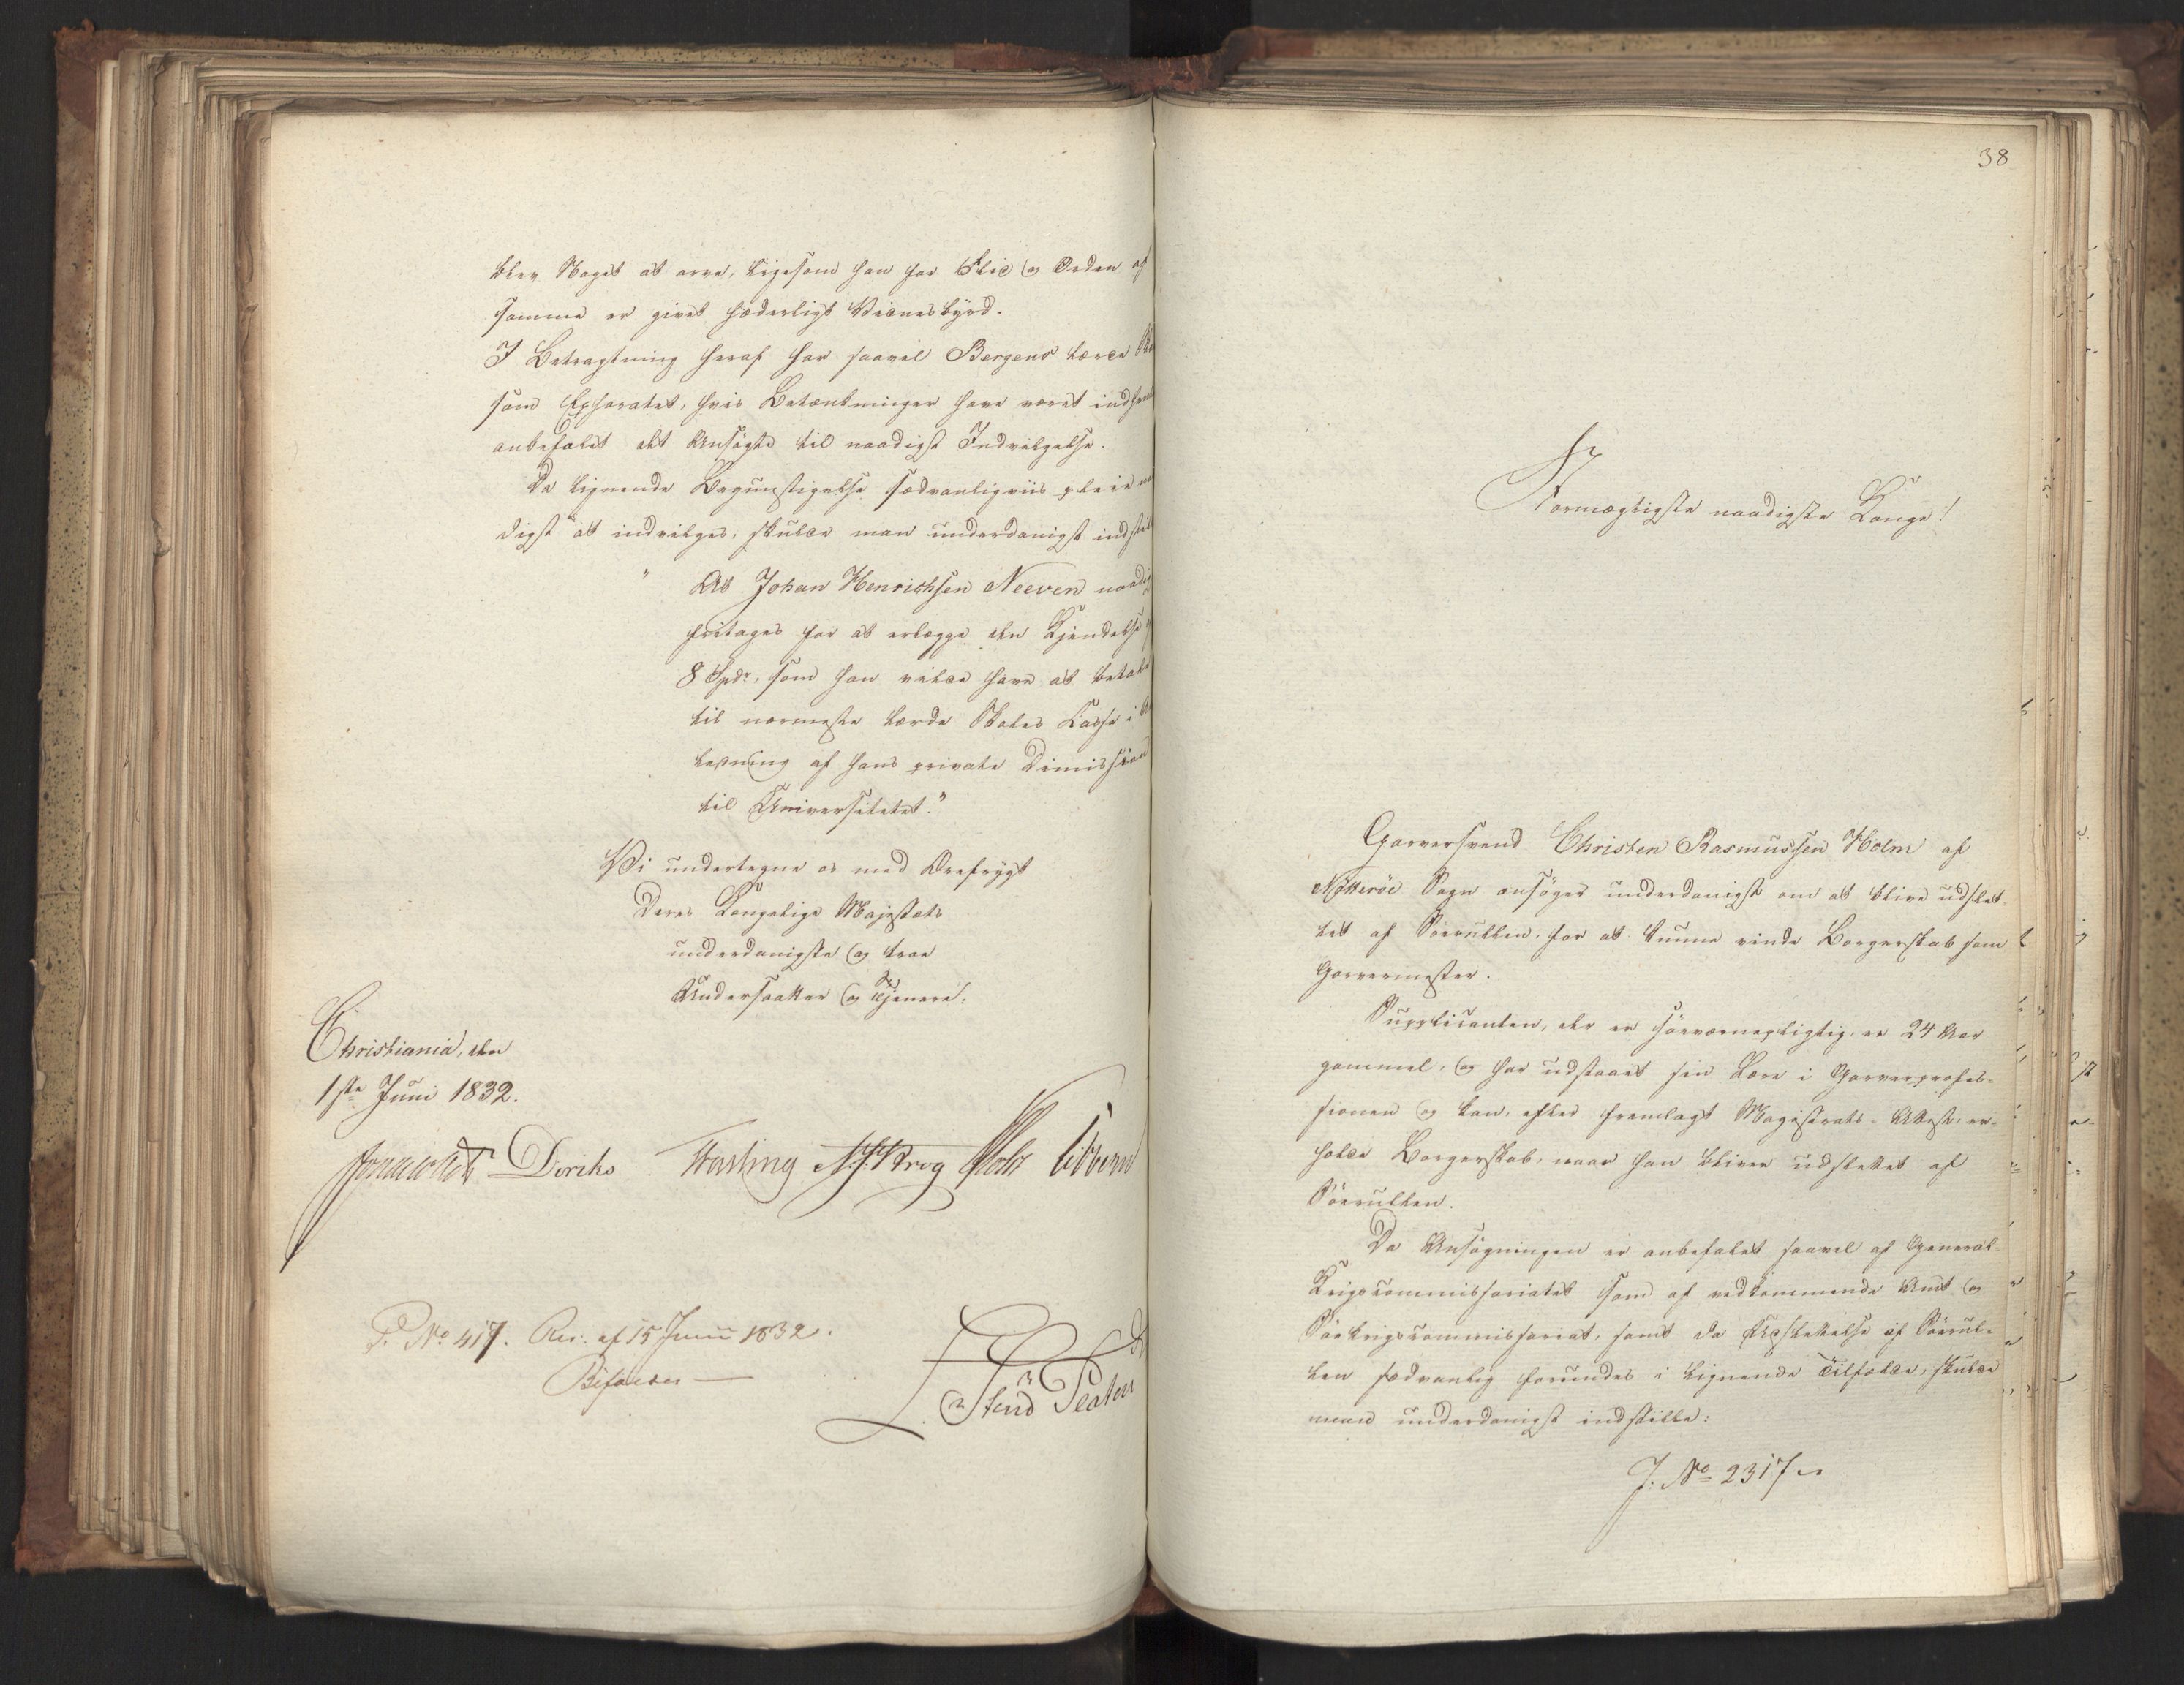 blev Noget at arve, ligesom han for Flid og Orden af
samme er givet hæderligt Vidnesbyrd.
I Betragtning heraf har saavel Bergens lærde
som Ephoratet, hvis Betænkninger have været indh
anbefalet det Ansøgte til naadigst Indvilgelse.
Da lignende Begunstigelse sædvanligviis pleie
digst at indvilges, skulde man underdanigst indstil
" At Johan Henrichsen Neeven naadi
fritages for at erlægge den Kjendelse
8 Spdr, som han vilde have at betale
til nærmeste lærde Skoles Casse i
ledning af hans private Dimission
til Universitetet."
Vi undertegne os med Ærefrygt
Deres Kongelige Majestæts
underdanigste og troe
Undersaatter og Tjenere.
Christiania, den
1ste Juni 1832.
Diriks Fasting Krog Holst Sibbern
P. No 417. Res. af 15 Juni 1832.
Bifaldes —
38
Stormægtigste naadigste Konge!
Garversvend Christen Rasmussen Holm af
Nøtterøe Sogn ansøger underdanigst om at blive udslet-
tet af Søerullen, for at kunne vinde Borgerskab som
Garvermester.
Supplicanten, der er søeværnepligtig, er 24 Aar
gammel, og har udstaaet sin Lære i Garverprofes-
sionen og kan, efter fremlagt Magistrats-Attest, er-
holde Borgerskab, naar han bliver udslettet af
Søerullen.
Da Ansøgningen er anbefalet saavel af General-
Krigscommissariatet som af vedkommende Amt og
Søekrigscommissariat, samt da Udslettelse af Søerul-
len sædvanlig forundes i lignende Tilfælde, skulde
man underdanigst indstille:
J. No 2317